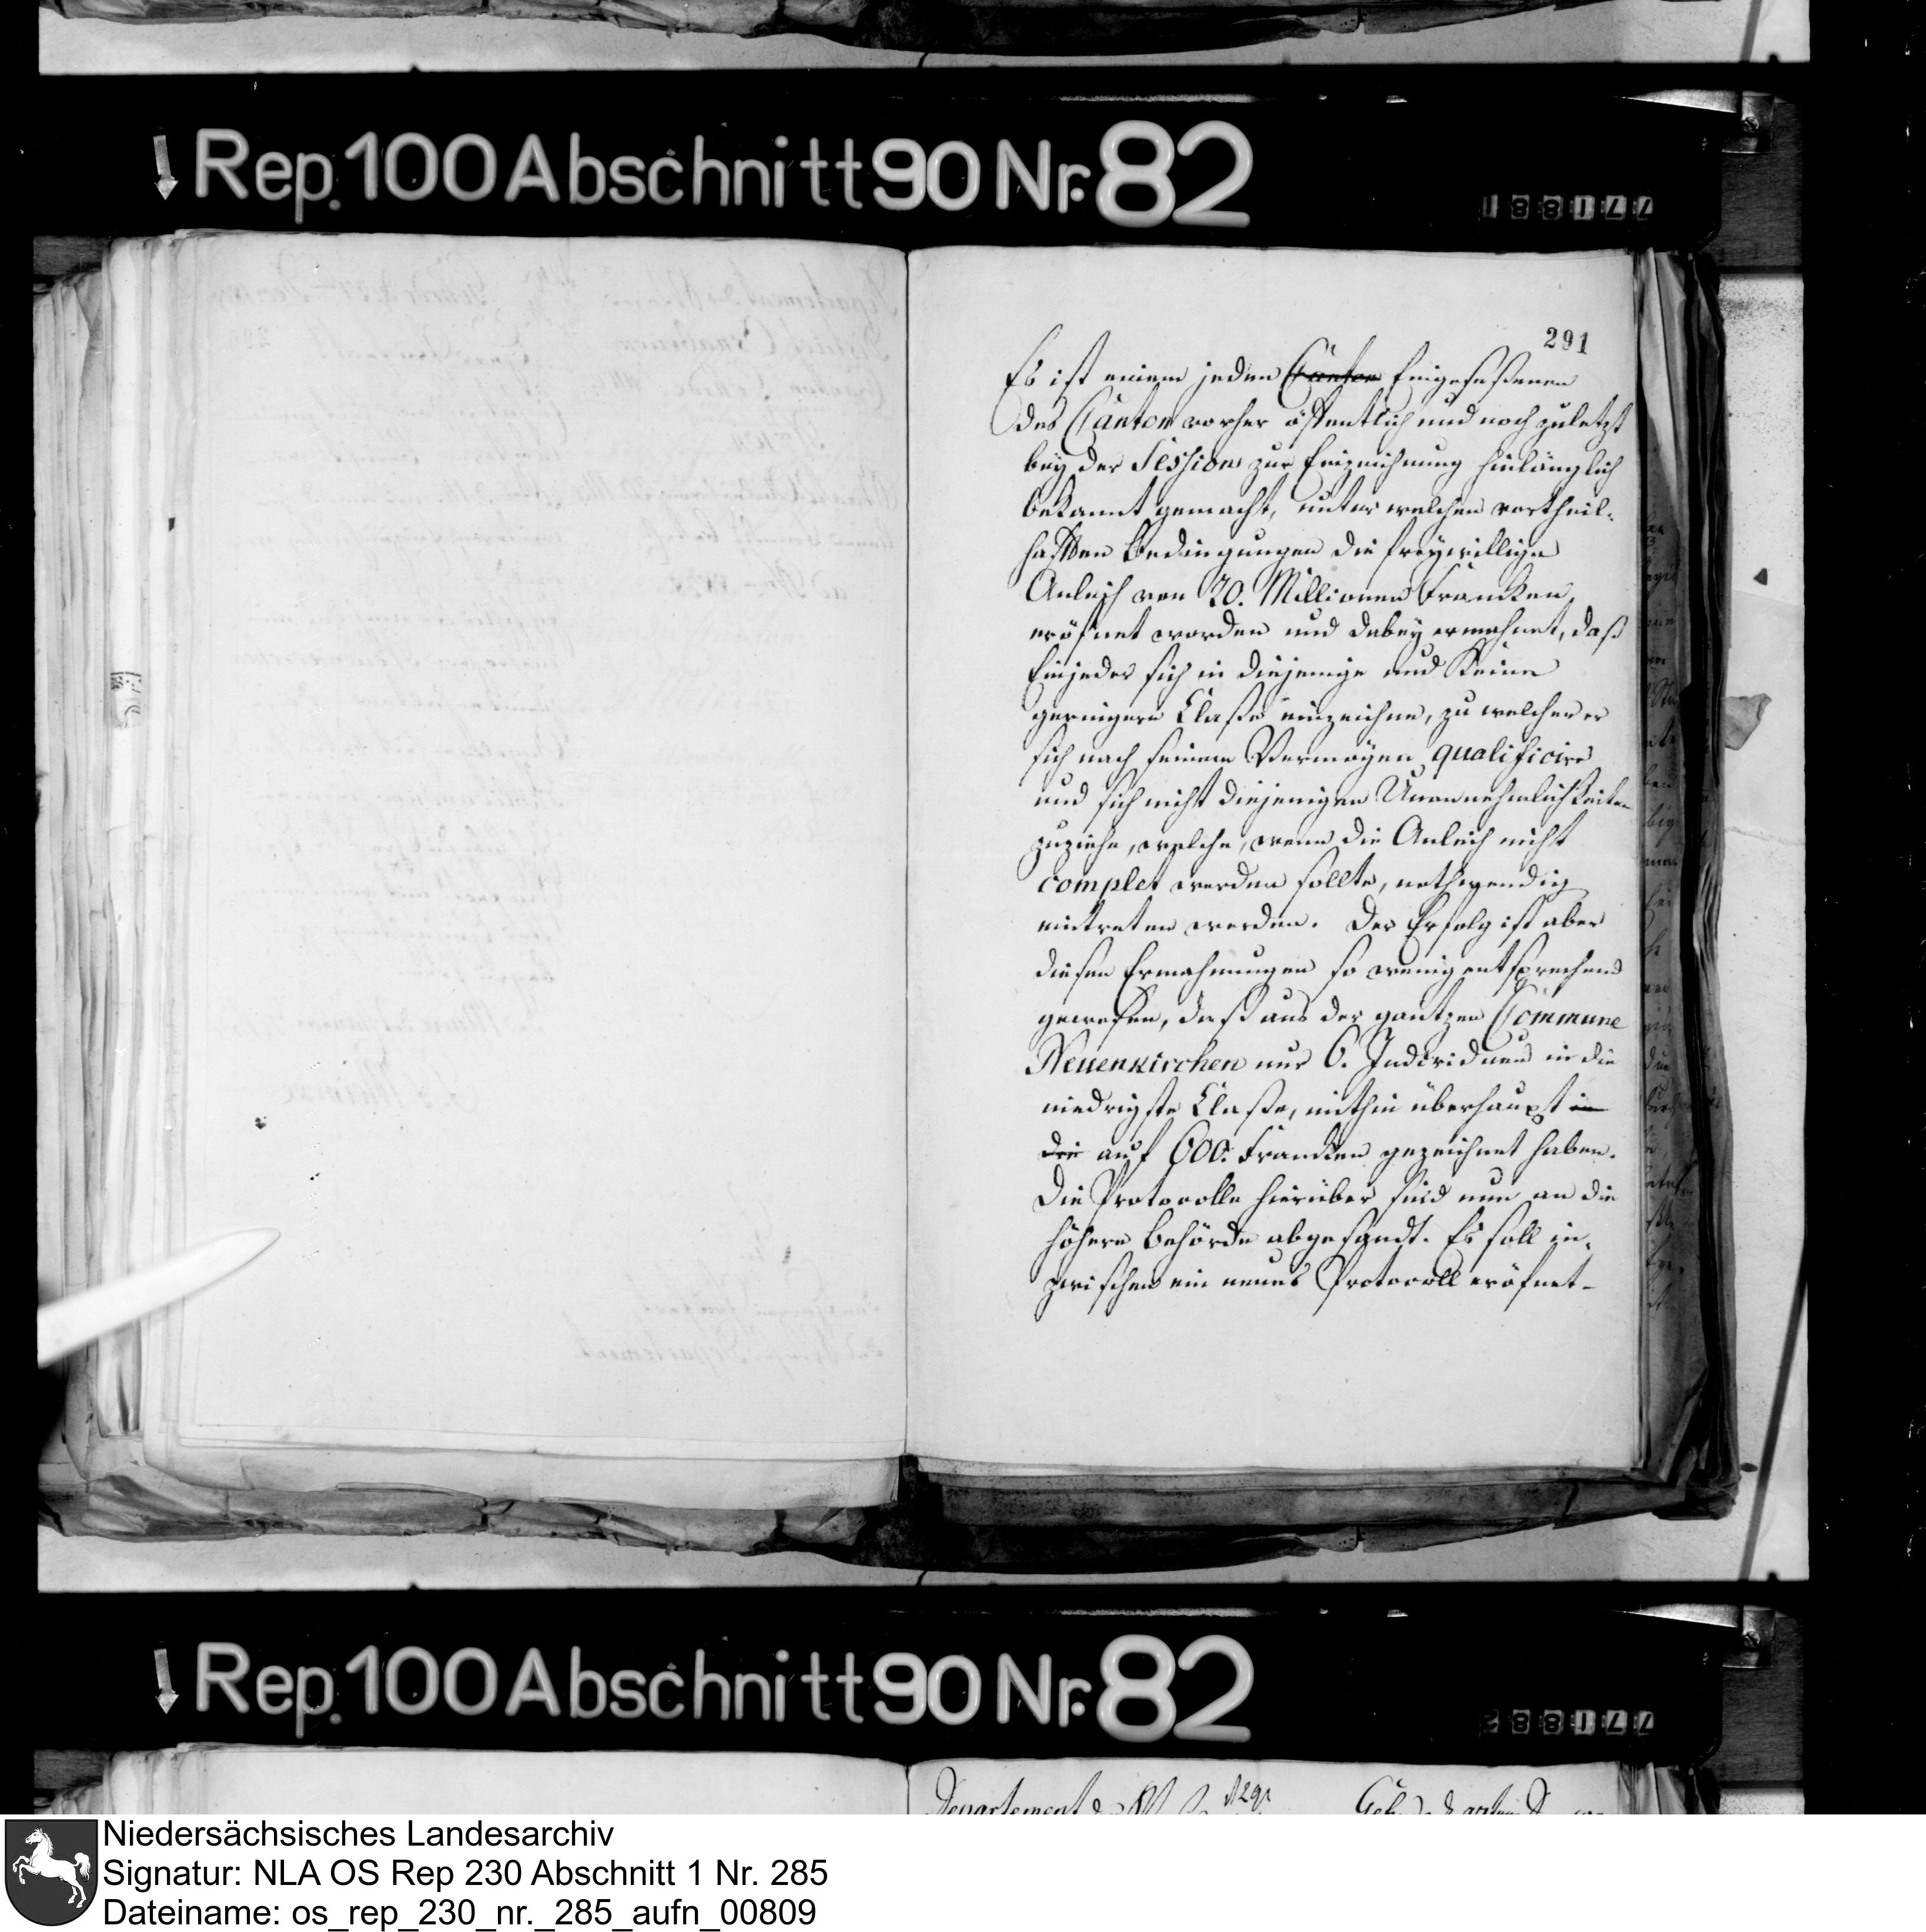 Rep. 100 Abschnitt 90 Nr. 82
771881
291
Es ist einem jeden Canton Eingeseßenen
des Canton vorher öffentlich und noch zuletzt
bey der Session zur Einzeichnung hinlänglich
bekannt gemacht, unter welchen vortheil-
haften Bedingungen die freywillige
Anleih von 20. Millionen Francken
eröfnet worden und dabey ermahnet, daß
Einjeder sich in diejenige und keine
geringere Claße einzeichne, zu welcher er
sich nach seinem Vermögen qualificire
und sich nicht diejenigen Unannehmlichkeiten
zuziehe, welche, wenn die Anleih nicht
complet werden sollte, nothwendig
eintreten werden. Der Erfolg ist aber
diesen Ermahnungen so wenig entsprechend
gewesen, daß aus der gantzen Commune
Neuenkirchen nur 6. Individuen in die
niedrigste Claße, mithin überhaupt in
die auf 600. Francken gezeichnet haben.
Die Protocolle hierüber sind nun an die
höhere Behörde abgesandt. Es soll in-
zwischen ein neues Protocoll eröfnet
Rep. 100 Abschnitt 90 Nr. 82
771882
Departement
Niedersächsisches Landesarchiv
Signatur: NLA OS Rep 230 Abschnitt 1 Nr. 285
Dateiname: os_rep_230_nr._285_aufn_00809